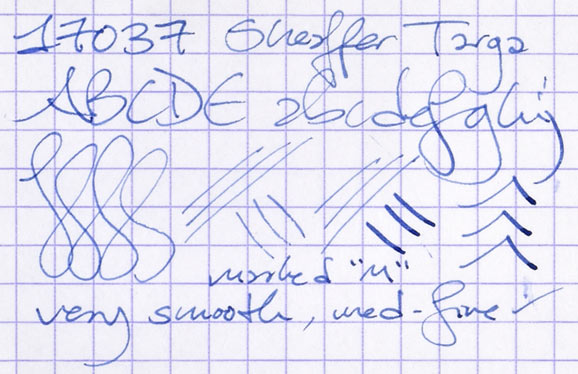 17037 Sheaffer Targa
ABCDE abcdefghij
marked "M"
very smooth, med-fine